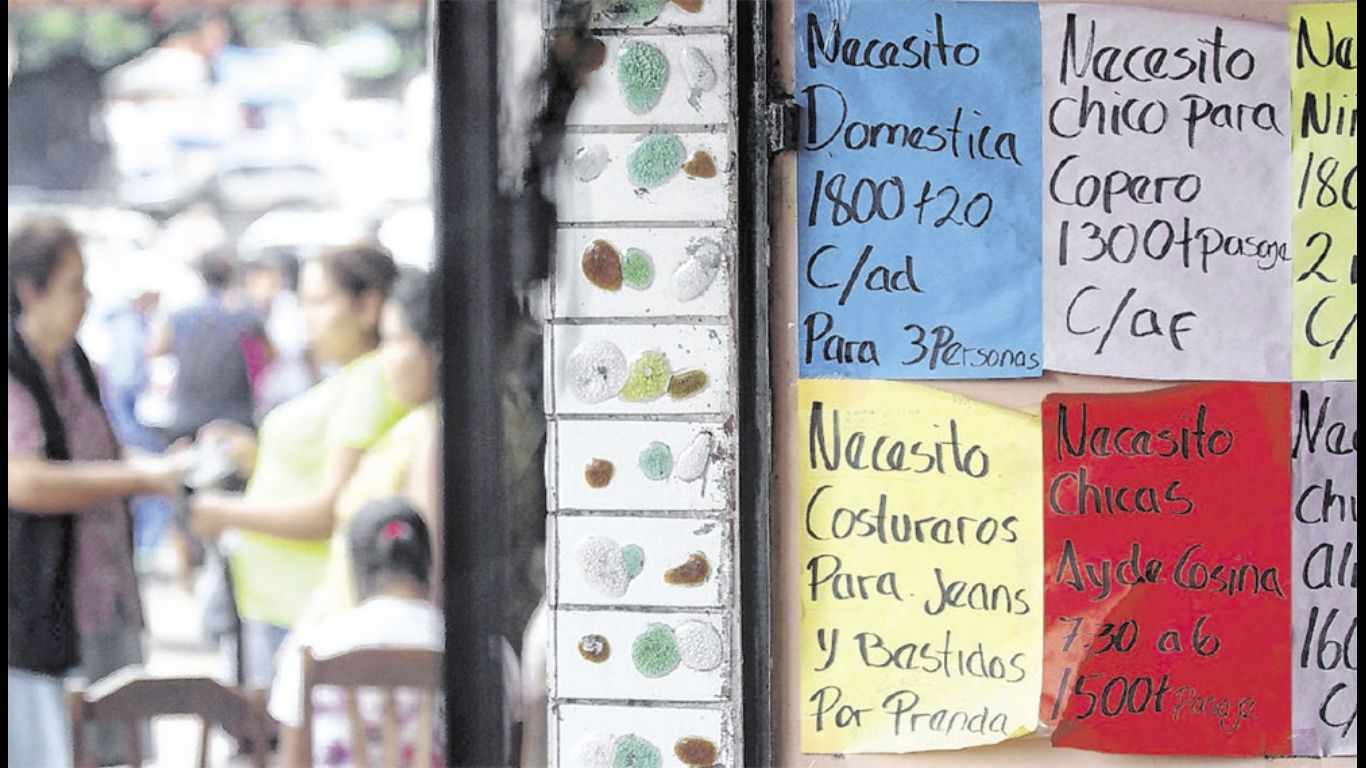 Necesito
Domestica
1800+20
C/ad
Para 3 Personas
Necesito
Chico Para
Copero
1300+pasaje
C/af
Ne
180
2
C/
Necesito
Costureros
Para Jeans
y Bestidos
Por Prenda
Necesito
Chicas
Ayde. Cosina
7:30 a 6
1500+Pasaje
160
C/